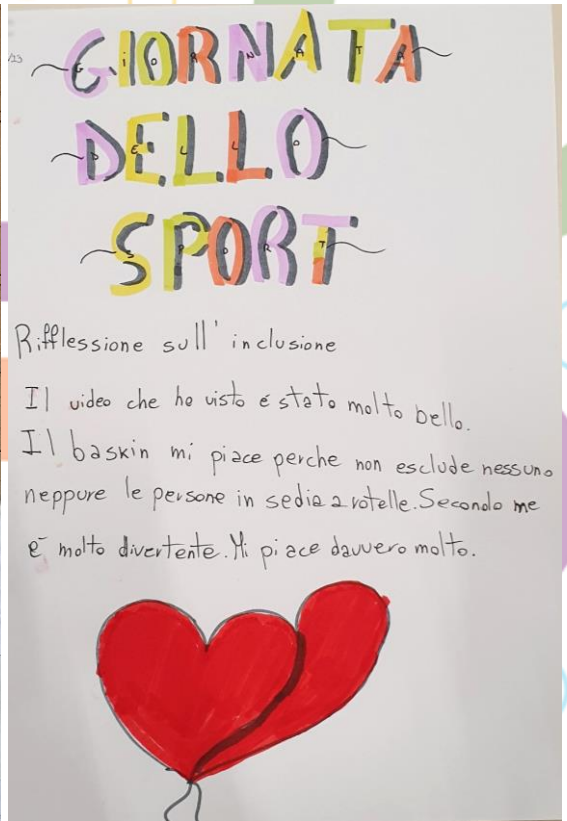 /23
GIORNATA
DELLO
SPORT
Rifflessione sull' inclusione
Il video che ho visto é stato molto bello.
Il baskin mi piace perche non esclude nessuno
neppure le persone in sedia a rotelle. Secondo me
é molto divertente. Mi piace davvero molto.